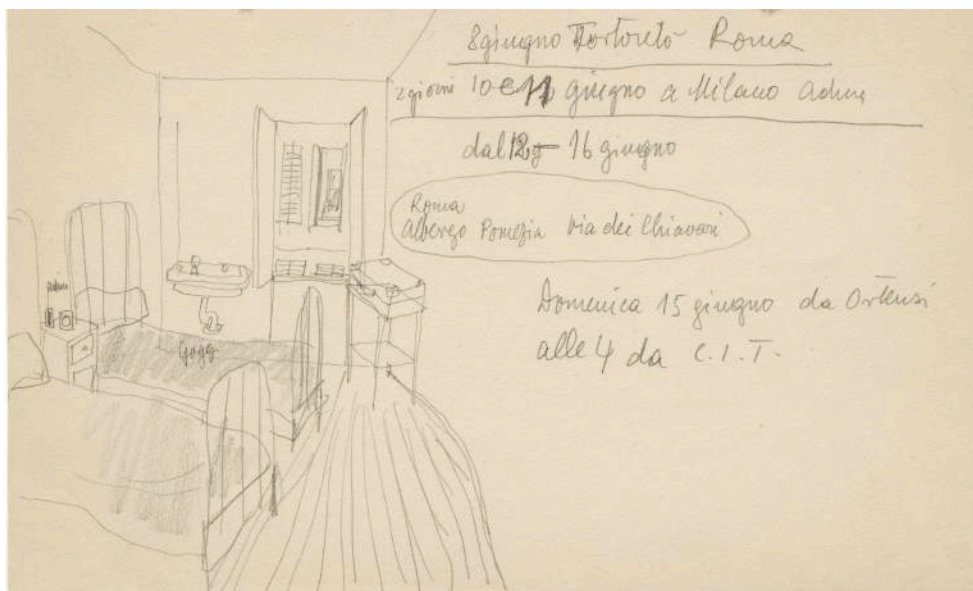 8 giugno Tortoreto Roma
2 giorni 10 e 11 giugno a Milano
dal 12 - 16 giugno
Roma
Albergo Pomezia Via dei Chiavari
Domenica 15 giugno da Ortensi
alle 4 da C.I.T.